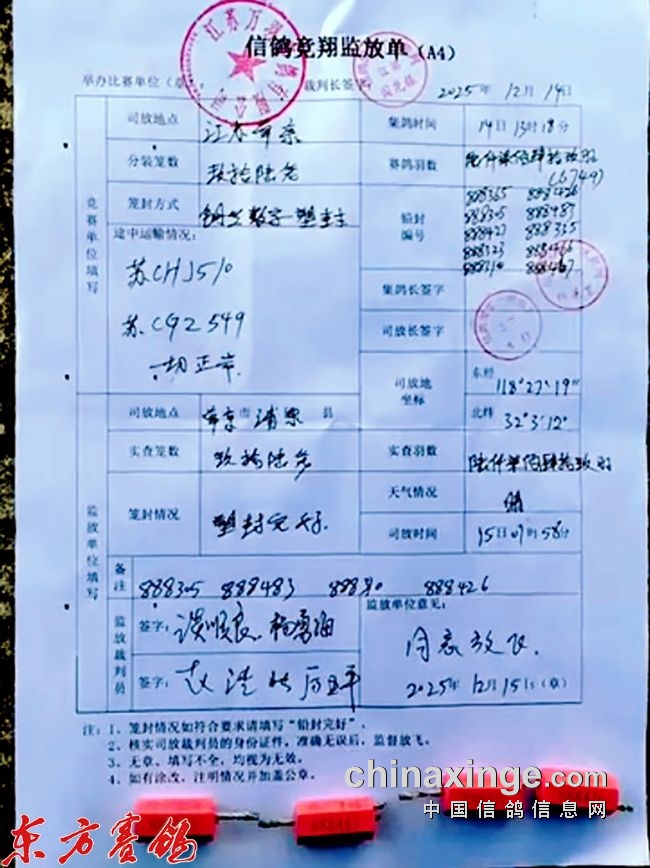 信鸽竞翔监放单(A4)
举办比赛单位(章) 裁判长签字 2025年12月14日
竞赛单位填写
司放地点 江苏南京 集鸽时间 14日13时18分
分装笼数 玖拾陆笼 赛鸽羽数 陆仟柒佰肆拾玖羽
(6749)
笼封方式 铅封编号
888365 888426
888305 888487
888427 888335
888323 888466
途中运输情况:
苏CHJ510
苏CGZ549
集鸽长签字
司放长签字
司放地坐标 东经 118°27′19″
北纬 32°3′12″
监放单位填写
司放地点 南京市 县
实查笼数 玖拾陆笼 实查羽数 陆仟柒佰肆拾玖羽
笼封情况 塑封完好 天气情况 晴
司放时间 15日07时58分
备注 888305 888483 888426
监放裁判员 签字: 签字:
监放单位意见:
同意放飞.
2025年12月15日(章)
注:1、笼封情况如符合要求请填写“铅封完好”。
2、核实司放裁判员的身份证件,准确无误后,监督放飞。
3、无章、填写不全,均视为无效。
4、如有涂改,注明情况并加盖公章。
chinaxinge.com
中国信鸽信息网
东方赛鸽